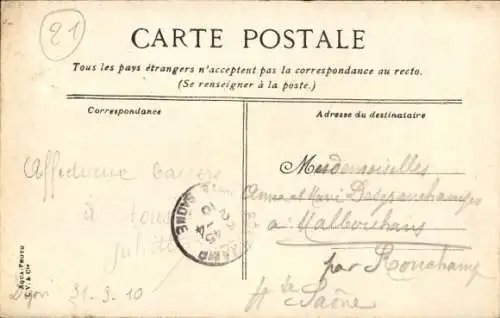 21
CARTE POSTALE
Tous les pays étrangers n'acceptent pas la correspondance au recto.
(Se renseigner à la poste.)
Correspondance
Adresse du destinataire
Affectueux baisers
à tous
Juliette
Dijon 31-3-10
Mesdemoiselles
Anna et Marie
a Malbouhans
par Ronchamp
Hte Saône
AQUA-PHOTO